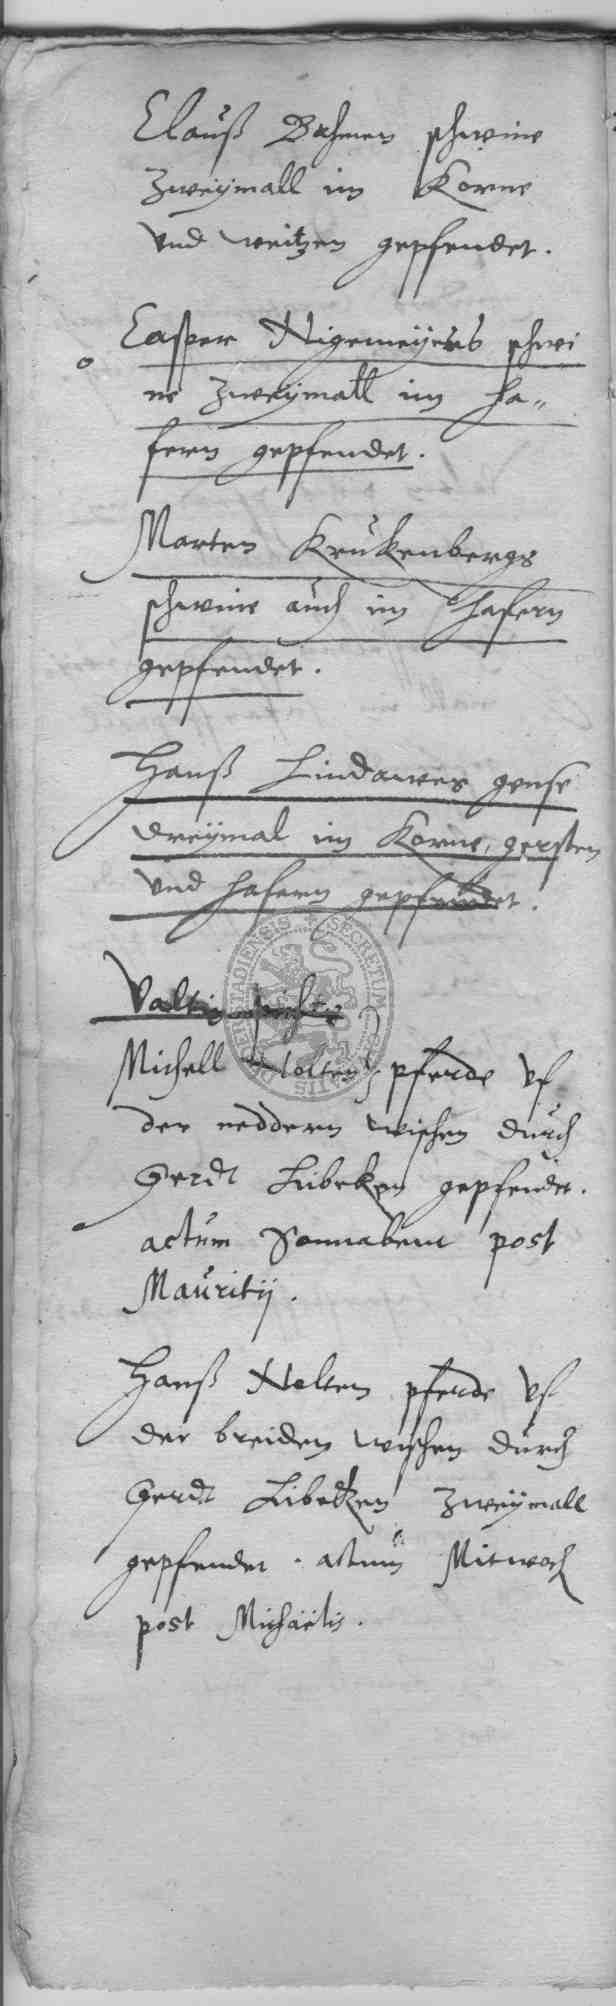 Clauß Bahmen schwine
zweÿmall im Korne
vnd weitzen gepfendet.
Casper Nigemeÿers schwi
ne zweÿmall im ha„
fern gepfendet.
Marten Krukenbergs
schwine auch im hafern
gepfendet.
Hanß Lindawes gense
dreÿmal im Korne, gersten
vnd hafern gepfendet.
Valtin
Michell Nolten pferde vf
der neddern wischen durch
Gerdt Lübeken gepfendet.
actum Sonnabent post
Mauritij.
Hanß Nolten pferde vf
der breiden wischen durch
Gerdt Libeken zweÿmall
gepfendet. actum Mitwoch
post Michaëlis.
SECRETUM